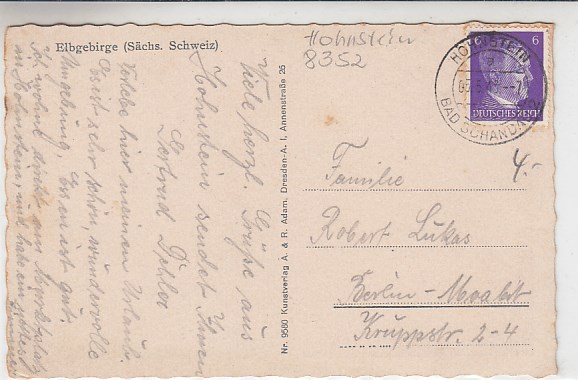 Elbgebirge (Sächs. Schweiz)
Hohnstein
8352
HOHNSTEIN
BAD SCHANDAU
6
DEUTSCHES REICH
4.-
Viele herzl. Grüße aus
Hohnstein sendet Ihnen
Gertrud
Verlebe hier meinen Urlaub.
Es ist sehr schön, wundervolle
Umgebung, Essen ist gut.
Ich wohne direkt am Marktplatz
in Hohnstein, und habe ein
Nr. 9580 Kunstverlag A. & R. Adam, Dresden-A. I, Annenstraße 26
Familie
Robert Lukas
Berlin-Moabit
Kruppstr. 2-4